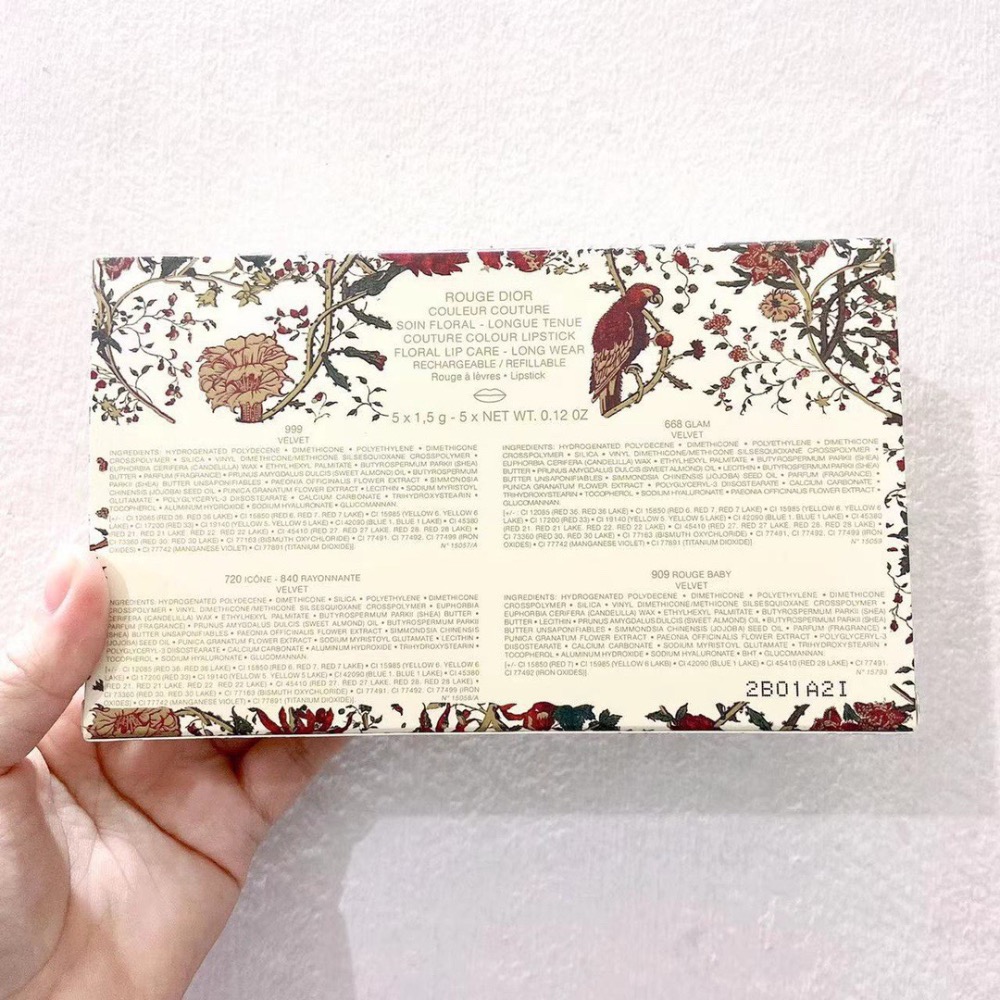 ROUGE DIOR
COULEUR COUTURE
SOIN FLORAL - LONGUE TENUE
COUTURE COLOUR LIPSTICK
FLORAL LIP CARE - LONG WEAR
RECHARGEABLE / REFILLABLE
Rouge à lèvres • Lipstick
5 x 1,5 g - 5 x NET WT. 0.12 OZ
999
VELVET
INGREDIENTS: HYDROGENATED POLYDECENE • DIMETHICONE • POLYETHYLENE • DIMETHICONE
CROSSPOLYMER • SILICA • VINYL DIMETHICONE/METHICONE SILSESQUIOXANE CROSSPOLYMER •
EUPHORBIA CERIFERA (CANDELILLA) WAX • ETHYLHEXYL PALMITATE • BUTYROSPERMUM PARKII (SHEA)
BUTTER • PARFUM (FRAGRANCE) • PRUNUS AMYGDALUS DULCIS (SWEET ALMOND) OIL • BUTYROSPERMUM
PARKII (SHEA) BUTTER UNSAPONIFIABLES • PAEONIA OFFICINALIS FLOWER EXTRACT • SIMMONDSIA
CHINENSIS (JOJOBA) SEED OIL • PUNICA GRANATUM FLOWER EXTRACT • LECITHIN • SODIUM MYRISTOYL
GLUTAMATE • POLYGLYCERYL-3 DIISOSTEARATE • CALCIUM CARBONATE • TRIHYDROXYSTEARIN •
TOCOPHEROL • ALUMINUM HYDROXIDE • SODIUM HYALURONATE • GLUCOMANNAN.
[+/- : CI 12085 (RED 36, RED 36 LAKE) • CI 15850 (RED 6, RED 7, RED 7 LAKE) • CI 15985 (YELLOW 6, YELLOW 6
LAKE) • CI 17200 (RED 33) • CI 19140 (YELLOW 5, YELLOW 5 LAKE) • CI 42090 (BLUE 1, BLUE 1 LAKE) • CI 45380
(RED 21, RED 21 LAKE, RED 22, RED 22 LAKE) • CI 45410 (RED 27, RED 27 LAKE, RED 28, RED 28 LAKE) •
CI 73360 (RED 30, RED 30 LAKE) • CI 77163 (BISMUTH OXYCHLORIDE) • CI 77491, CI 77492, CI 77499 (IRON
OXIDES) • CI 77742 (MANGANESE VIOLET) • CI 77891 (TITANIUM DIOXIDE)] N° 15057/A
668 GLAM
VELVET
INGREDIENTS: HYDROGENATED POLYDECENE • DIMETHICONE • POLYETHYLENE • DIMETHICONE
CROSSPOLYMER • SILICA • VINYL DIMETHICONE/METHICONE SILSESQUIOXANE CROSSPOLYMER •
EUPHORBIA CERIFERA (CANDELILLA) WAX • ETHYLHEXYL PALMITATE • BUTYROSPERMUM PARKII (SHEA)
BUTTER • PRUNUS AMYGDALUS DULCIS (SWEET ALMOND) OIL • LECITHIN • BUTYROSPERMUM PARKII (SHEA)
BUTTER UNSAPONIFIABLES • SIMMONDSIA CHINENSIS (JOJOBA) SEED OIL • PARFUM (FRAGRANCE) •
PUNICA GRANATUM FLOWER EXTRACT • POLYGLYCERYL-3 DIISOSTEARATE • CALCIUM CARBONATE •
TRIHYDROXYSTEARIN • TOCOPHEROL • SODIUM HYALURONATE • PAEONIA OFFICINALIS FLOWER EXTRACT •
GLUCOMANNAN.
[+/- : CI 12085 (RED 36, RED 36 LAKE) • CI 15850 (RED 6, RED 7, RED 7 LAKE) • CI 15985 (YELLOW 6, YELLOW 6
LAKE) • CI 17200 (RED 33) • CI 19140 (YELLOW 5, YELLOW 5 LAKE) • CI 42090 (BLUE 1, BLUE 1 LAKE) • CI 45380
(RED 21, RED 21 LAKE, RED 22, RED 22 LAKE) • CI 45410 (RED 27, RED 27 LAKE, RED 28, RED 28 LAKE) •
CI 73360 (RED 30, RED 30 LAKE) • CI 77163 (BISMUTH OXYCHLORIDE) • CI 77491, CI 77492, CI 77499 (IRON
OXIDES) • CI 77742 (MANGANESE VIOLET) • CI 77891 (TITANIUM DIOXIDE)]
720 ICÔNE - 840 RAYONNANTE
VELVET
INGREDIENTS: HYDROGENATED POLYDECENE • DIMETHICONE • SILICA • POLYETHYLENE • DIMETHICONE
CROSSPOLYMER • VINYL DIMETHICONE/METHICONE SILSESQUIOXANE CROSSPOLYMER • EUPHORBIA
CERIFERA (CANDELILLA) WAX • ETHYLHEXYL PALMITATE • BUTYROSPERMUM PARKII (SHEA) BUTTER •
PARFUM (FRAGRANCE) • PRUNUS AMYGDALUS DULCIS (SWEET ALMOND) OIL • BUTYROSPERMUM PARKII
(SHEA) BUTTER UNSAPONIFIABLES • PAEONIA OFFICINALIS FLOWER EXTRACT • SIMMONDSIA CHINENSIS
(JOJOBA) SEED OIL • PUNICA GRANATUM FLOWER EXTRACT • SODIUM MYRISTOYL GLUTAMATE • LECITHIN •
POLYGLYCERYL-3 DIISOSTEARATE • CALCIUM CARBONATE • ALUMINUM HYDROXIDE • TRIHYDROXYSTEARIN •
TOCOPHEROL • SODIUM HYALURONATE • GLUCOMANNAN.
[+/- CI 12085 (RED 36, RED 36 LAKE) • CI 15850 (RED 6, RED 7, RED 7 LAKE) • CI 15985 (YELLOW 6, YELLOW 6
LAKE) • CI 17200 (RED 33) • CI 19140 (YELLOW 5, YELLOW 5 LAKE) • CI 42090 (BLUE 1, BLUE 1 LAKE) • CI 45380
(RED 21, RED 21 LAKE, RED 22, RED 22 LAKE) • CI 45410 (RED 27, RED 27 LAKE, RED 28, RED 28 LAKE) •
CI 73360 (RED 30, RED 30 LAKE) • CI 77163 (BISMUTH OXYCHLORIDE) • CI 77491, CI 77492, CI 77499 (IRON
OXIDES) • CI 77742 (MANGANESE VIOLET) • CI 77891 (TITANIUM DIOXIDE)]
909 ROUGE BABY
VELVET
INGREDIENTS: HYDROGENATED POLYDECENE • DIMETHICONE • POLYETHYLENE • DIMETHICONE
CROSSPOLYMER • SILICA • VINYL DIMETHICONE/METHICONE SILSESQUIOXANE CROSSPOLYMER •
EUPHORBIA CERIFERA (CANDELILLA) WAX • ETHYLHEXYL PALMITATE • BUTYROSPERMUM PARKII (SHEA)
BUTTER • LECITHIN • PRUNUS AMYGDALUS DULCIS (SWEET ALMOND) OIL • BUTYROSPERMUM PARKII (SHEA)
BUTTER UNSAPONIFIABLES • SIMMONDSIA CHINENSIS (JOJOBA) SEED OIL • PARFUM (FRAGRANCE) •
PUNICA GRANATUM FLOWER EXTRACT • PAEONIA OFFICINALIS FLOWER EXTRACT • POLYGLYCERYL-3
DIISOSTEARATE • CALCIUM CARBONATE • SODIUM MYRISTOYL GLUTAMATE • TRIHYDROXYSTEARIN •
TOCOPHEROL • ALUMINUM HYDROXIDE • SODIUM HYALURONATE • BHT • GLUCOMANNAN.
[+/- CI 15850 (RED 7) • CI 15985 (YELLOW 6 LAKE) • CI 42090 (BLUE 1 LAKE) • CI 45410 (RED 28 LAKE) • CI 77491,
CI 77492 (IRON OXIDES)] N° 15793
2B01A2I